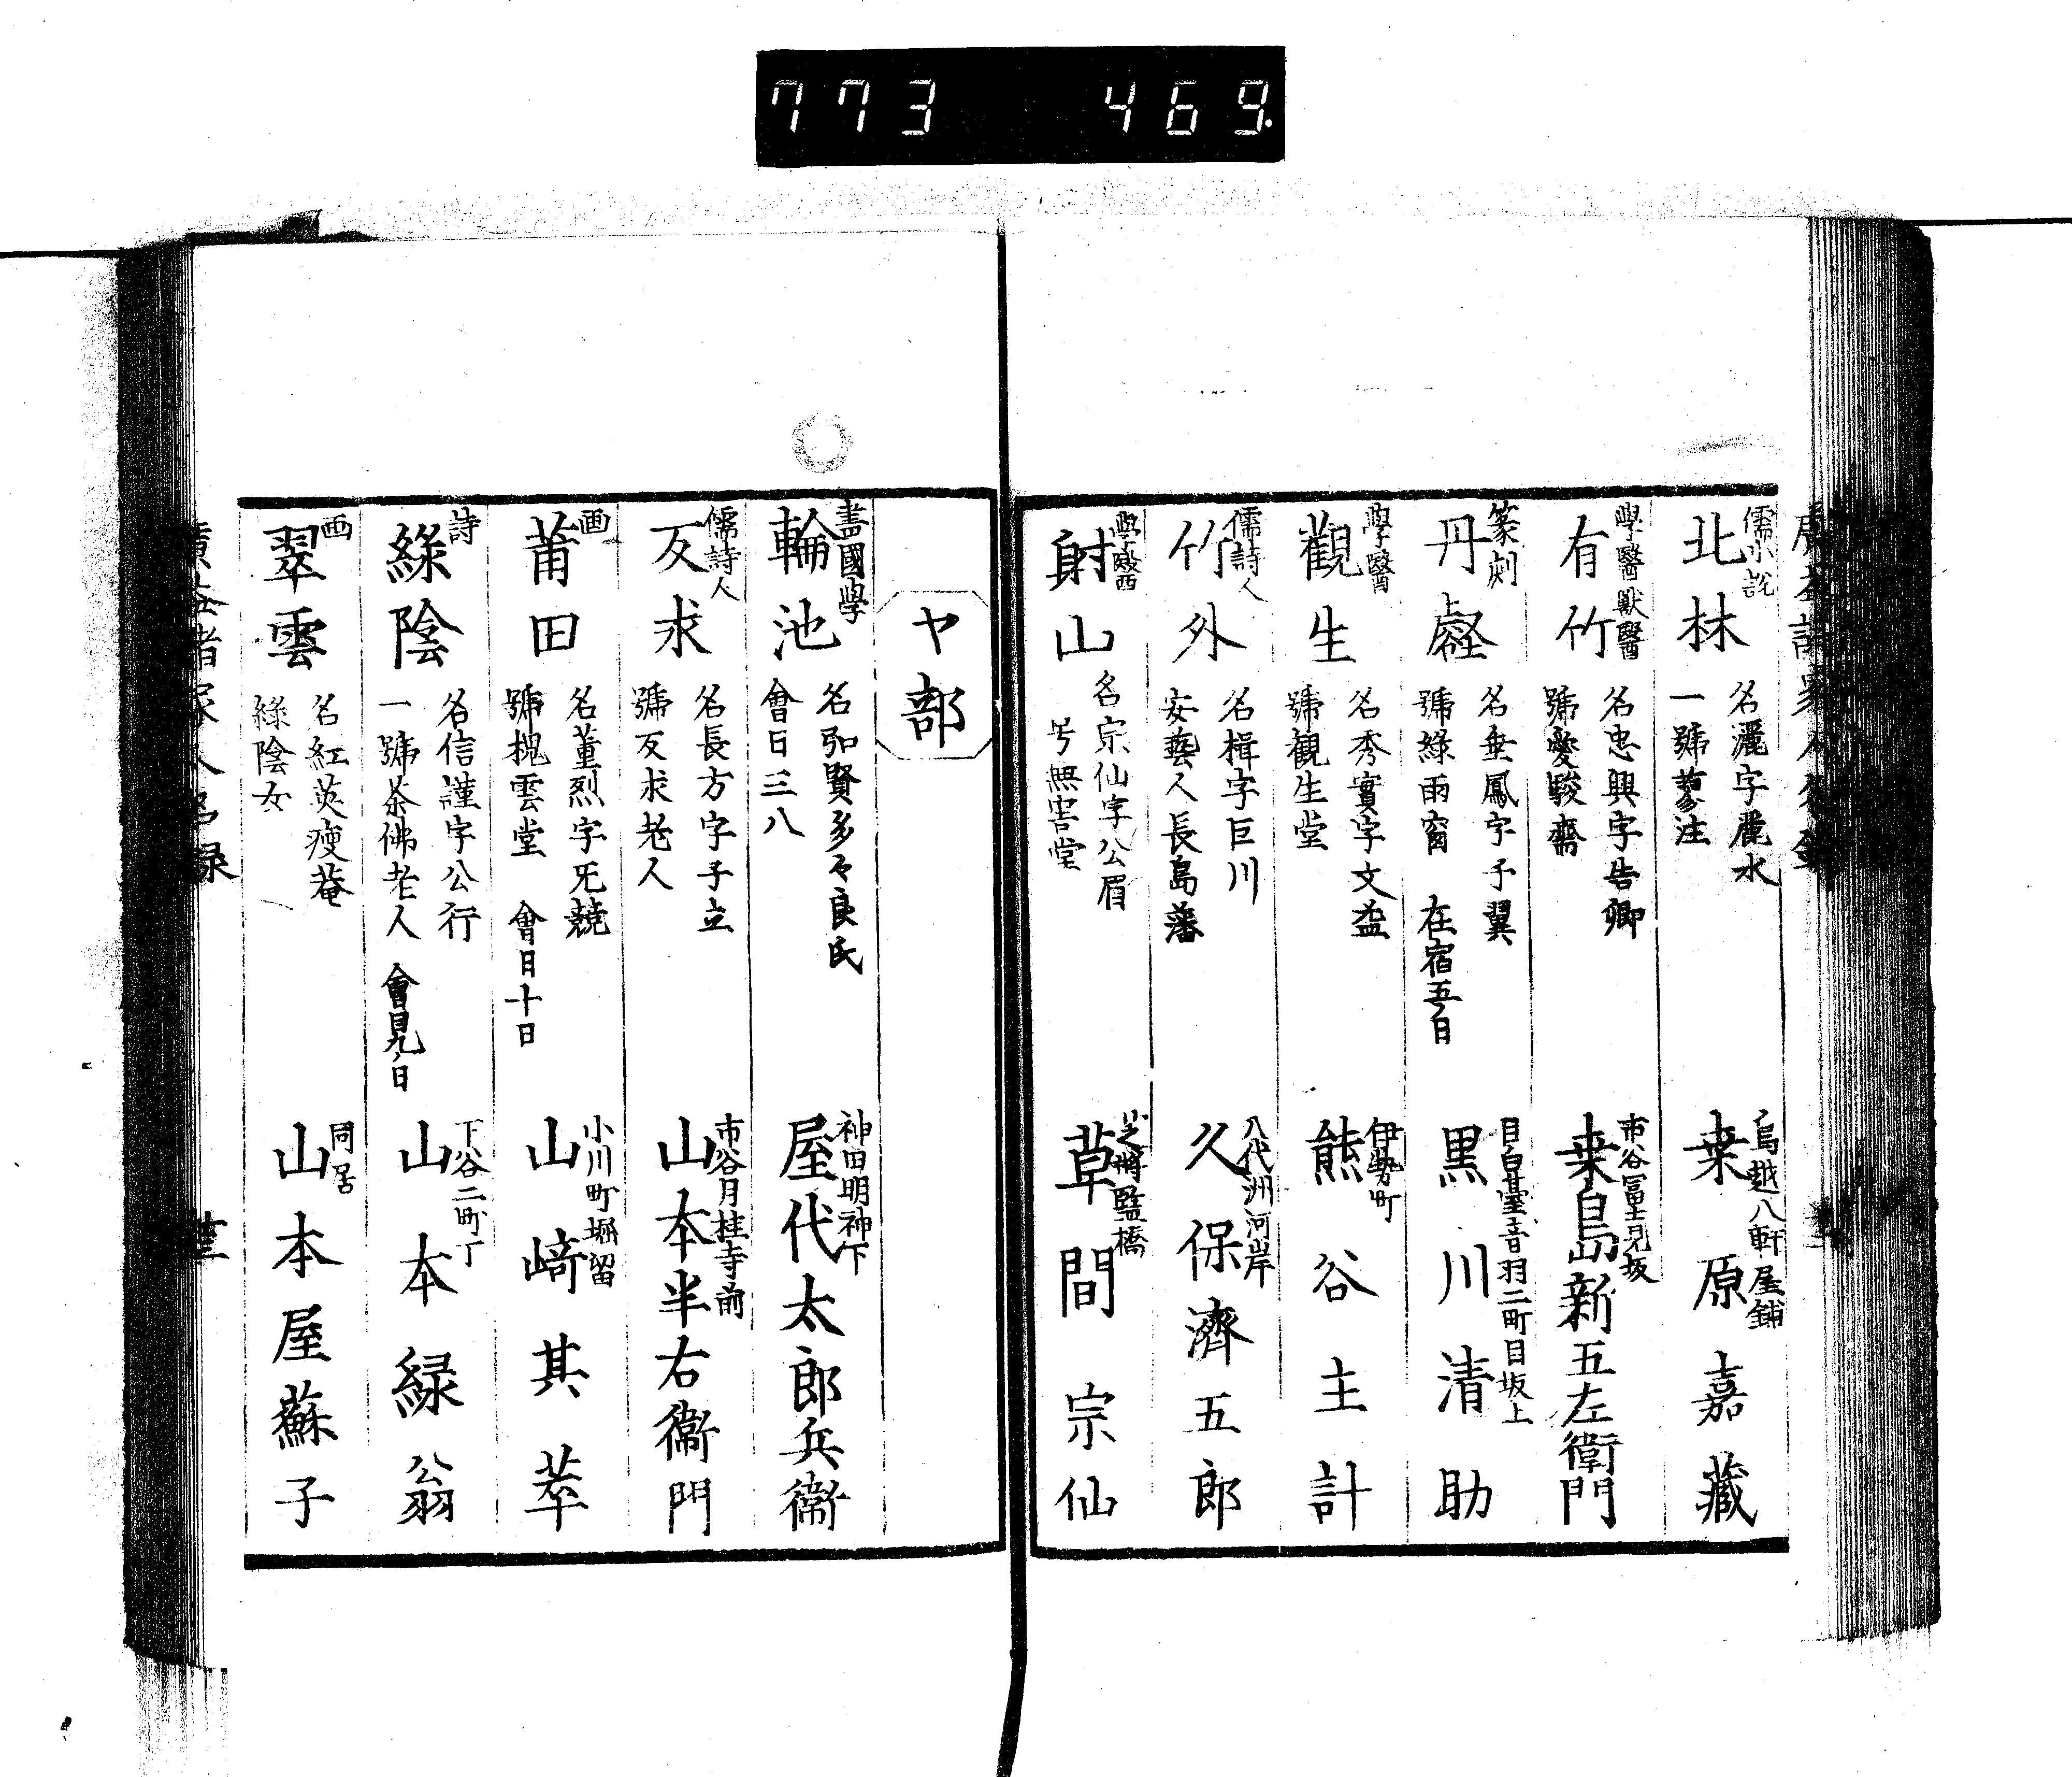 773 469.
儒小説
北林
名灑字麗水
一號蓼注
鳥越八軒屋鋪
桒原嘉藏
學醫獸醫
有竹
名忠興字告卿
號愛駿齋
市谷冨士見坂
桒島新五左衛門
篆刻
丹
名垂鳳字子翼
號綠雨窗 在宿五日
目白臺音羽二町目坂上
黒川清助
學醫
觀生
名秀實字文益
號観生堂
伊勢町
熊谷主計
儒詩人
竹外
名楫字巨川
安藝人長島藩
八代洲河岸
久保濟五郎
學醫
射山
名宗仙字公眉
号無害堂
芝將監橋
草間宗仙
ヤ部
書國學
輪池
名弘賢多々良氏
會日三八
神田明神下
屋代太郎兵衞
儒詩人
反求
名長方字子立
號反求老人
市谷月桂寺前
山本半右衞門
画
莆田
名董烈字旡競
號槐雲堂 會日十日
小川町堀留
山﨑其萃
詩
綠陰
名信謹字公行
一號茶佛老人 會日九ノ日
下谷二町丁
山本緑翁
画
翠雲
名紅英瘦菴
綠陰女
同居
山本屋蘇子
廣益諸家人名録